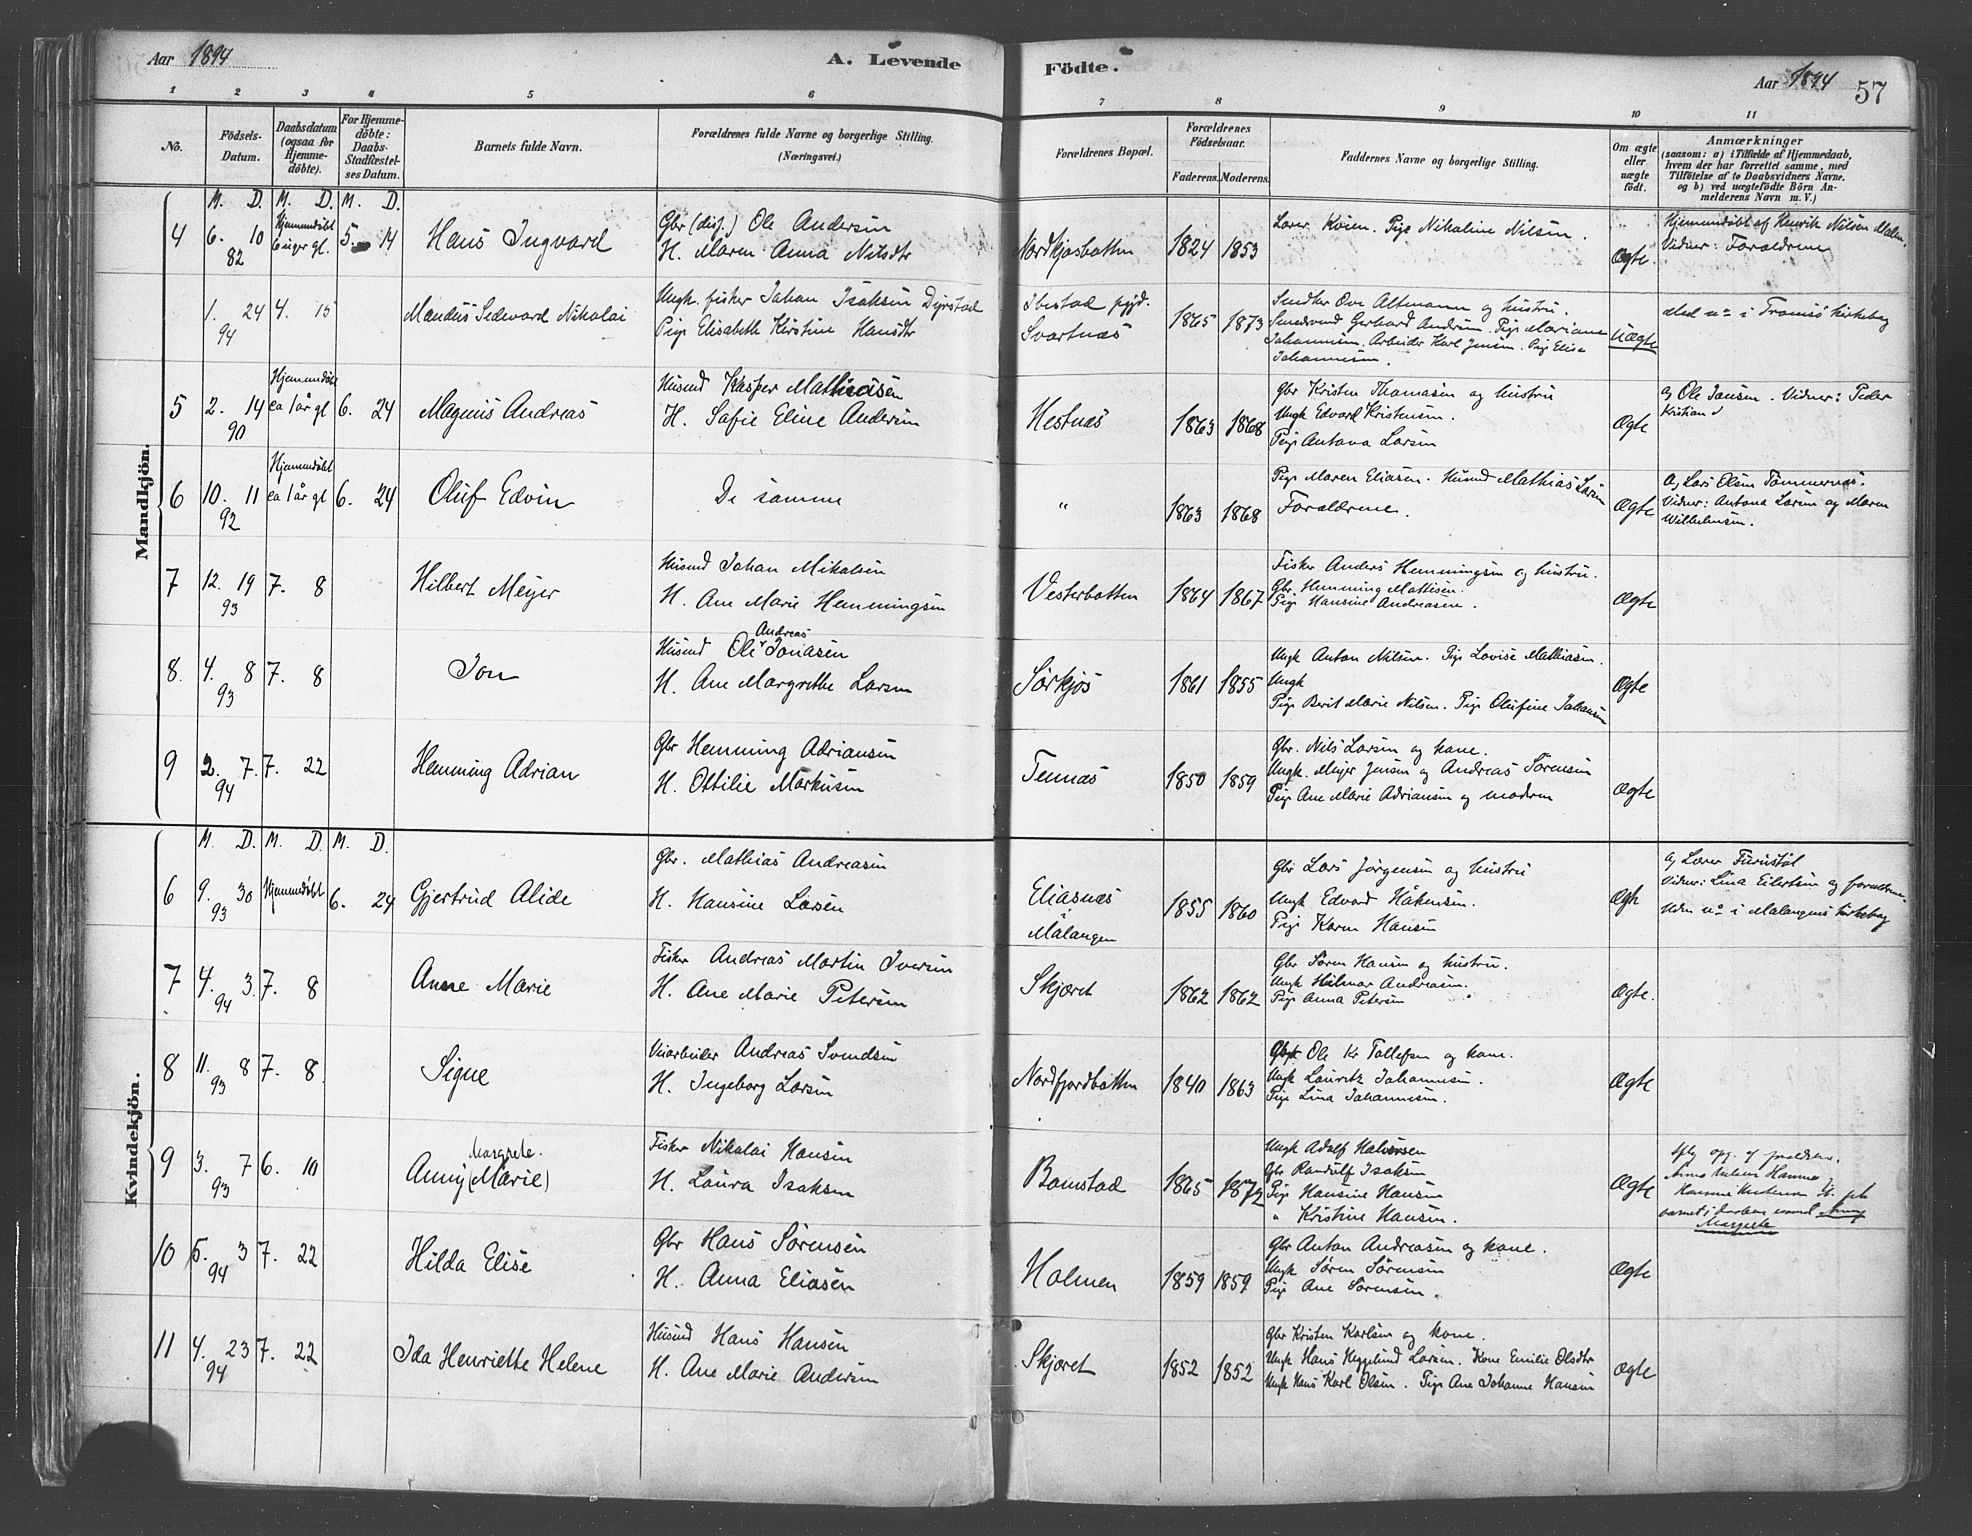 Aar 1894
A. Levende
Födte.
Aar 1894
57
1 2 3 4 5 6 7 8 9 10 11
No.
Födsels-
Datum.
Daabsdatum
(ogsaa for
Hjemme-
döbte).
For Hjemme-
döbte:
Daabs-
Stadfæstel-
ses Datum.
Barnets fulde Navn.
Forældrenes fulde Navne og borgerlige Stilling.
(Næringsvei.)
Forældrenes Bopæl.
Forældrenes
Födselsaar.
Faderens. Moderens.
Faddernes Navne og borgerlige Stilling.
Om ægte
eller
uægte
födt.
Anmærkninger
(saasom: a) i Tilfælde af Hjemmedaab,
hvem der har forrettet samme, med
Tilföielse af to Daabsvidners Navne,
og b) ved uægtefödte Börn An-
melderens Navn m. V.)
Mandkjön.
M. D. M. D. M. D.
4 6. 10 82 Hjemmedöbt 6 uger gl. 5. 14 Hans Ingvard
Gbr (disp.) Ole Andersen
H. Maren Anna Nilsdtr
Nordkjosbotten 1824 1853
Lærer Kvien. Pige Nikoline Nilsen.
Ægte.
Hjemmedöbt af Henrik Nilsen Malen.
Vidner: Forældrene
1. 24 94 4. 15 Mandus Sedevard Nikolai
Ungk. fisker Johan Isaksen Dyrstad
Pige Elisabeth Kirstine Hansdtr
Ibestad pgjd.
Svartnæs
1865 1873
Smedvend Gerhard Andersen. Pige Mariane
Johannesen. Arbeider Karl Jensen. Pige Elise
Johannesen.
Uægte
Med no i Tromsö kirkebog
5 2. 14 90 Hjemmedöbt ca 1 år gl 6. 24 Magnus Andreas
Husmd Kasper Mathisen
H. Sofie Eline Andersen
Hestnæs 1863 1868
Gbr Kristen Thomasen og hustru
Ungk Edvard Kristensen.
Pige Antona Larsen
Ægte
a, Ole Jansen. Vidner: Peder
Kristian d
6 10. 11 92 Hjemmedöbt ca 1 år gl 6. 24 Oluf Edvin
De samme
" 1863 1868
Pige Maren Eliasen. Husmd Mathias Larsen
Forældrene.
Ægte
a, Lars Olsen Tömmernæs.
Vidner: Antona Larsen og Maren
Wilhelmsen.
7 12. 19 93 7. 8 Hilbert Meyer
Husmd Johan Mikalsen
H. Ane Marie Hemmingsen
Vesterbotten 1864 1867
Fisker Anders Hemmingsen og hustru.
Gbr. Hemming Mattisen.
Pige Hansine Andreasen.
Ægte
8. 4. 8 93 7. 8 Jon
Andreas
Husmd Ole Jonasen
H. Ane Margrethe Larsen
Sörkjos 1861 1855
Ungk Anton Nilsen. Pige Lovise Mathiasen.
Ungk
Pige Berit Marie Nilsen. Pige Olufine Johansen
Ægte
9 2. 7. 94 7. 22 Hemming Adrian
Gbr Hemming Adriansen
H. Ottilie Markusen
Tennæs 1850 1859
Gbr. Nils Larsen og kone.
Ungk. Meyer Jensen og Andreas Sörensen
Pige Ane Marie Adriansen og moderen
Ægte
Kvindekjön.
M. D. M. D. M. D.
6 9. 30 93 Hjemmedöbt 6. 24 Gjertrud Alide
Gbr. Mathias Andreasen
H. Hansine Larsen
Eliasnæs
i
Malangen
1855 1860
Gbr Lars Jörgensen og hustru
Ungk Edvard Håkensen.
Pige Karen Hansen
Ægte
a, Lærer Furustöl
Vidner: Lina Eilertsen og forældrene.
Uden no i Malangens kirkebog
7 4. 3. 94 7. 8 Anne Marie
Fisker Andreas Martin Iversen
H. Ane Marie Petersen
Skjæret 1862 1862
Gbr Sören Hansen og hustru.
Ungk Hilmar Andreasen.
Pige Anna Petersen
Ægte.
8 11. 8 93 7. 8. Signe
Veiarbeider Andreas Svendsen
H. Ingeborg Larsen
Nordfjordbotten 1840 1863
Gbr Ole Kr Tollefsen og kone.
Ungk Lauritz Johannesen.
Pige Lina Johannesen.
Ægte
9 3. 7 93 6. 10 Margrete.
Anny (Marie)
Fisker Nikolai Hansen
H. Laura Isaksen
Bomstad 1865 1872
Ungk Adolf Halvorsen
Gbr Randulf Isaksen
Pige Hansine Hansen
" Kristine Hansen.
Ægte
Anny
Margrete
10 5. 3 94 7. 22 Hilda Elise
Gbr Hans Sörensen
H. Anna Eliasen
Holmen 1859 1859
Gbr Anton Andreasen og kone.
Ungk Sören Sörensen
Pige Ane Sörensen.
Ægte
11 4. 23 94 7. 22 Ida Henriette Helene
Husmd Hans Hansen
H. Ane Marie Andersen
Skjæret 1852 1852
Gbr Kristen Karlsen og kone.
Ungk Hans Heggelund Larsen. Kone Emilie Olsdtr
Ungk Hans Karl Olsen. Pige Ane Johanne Hansen
Ægte